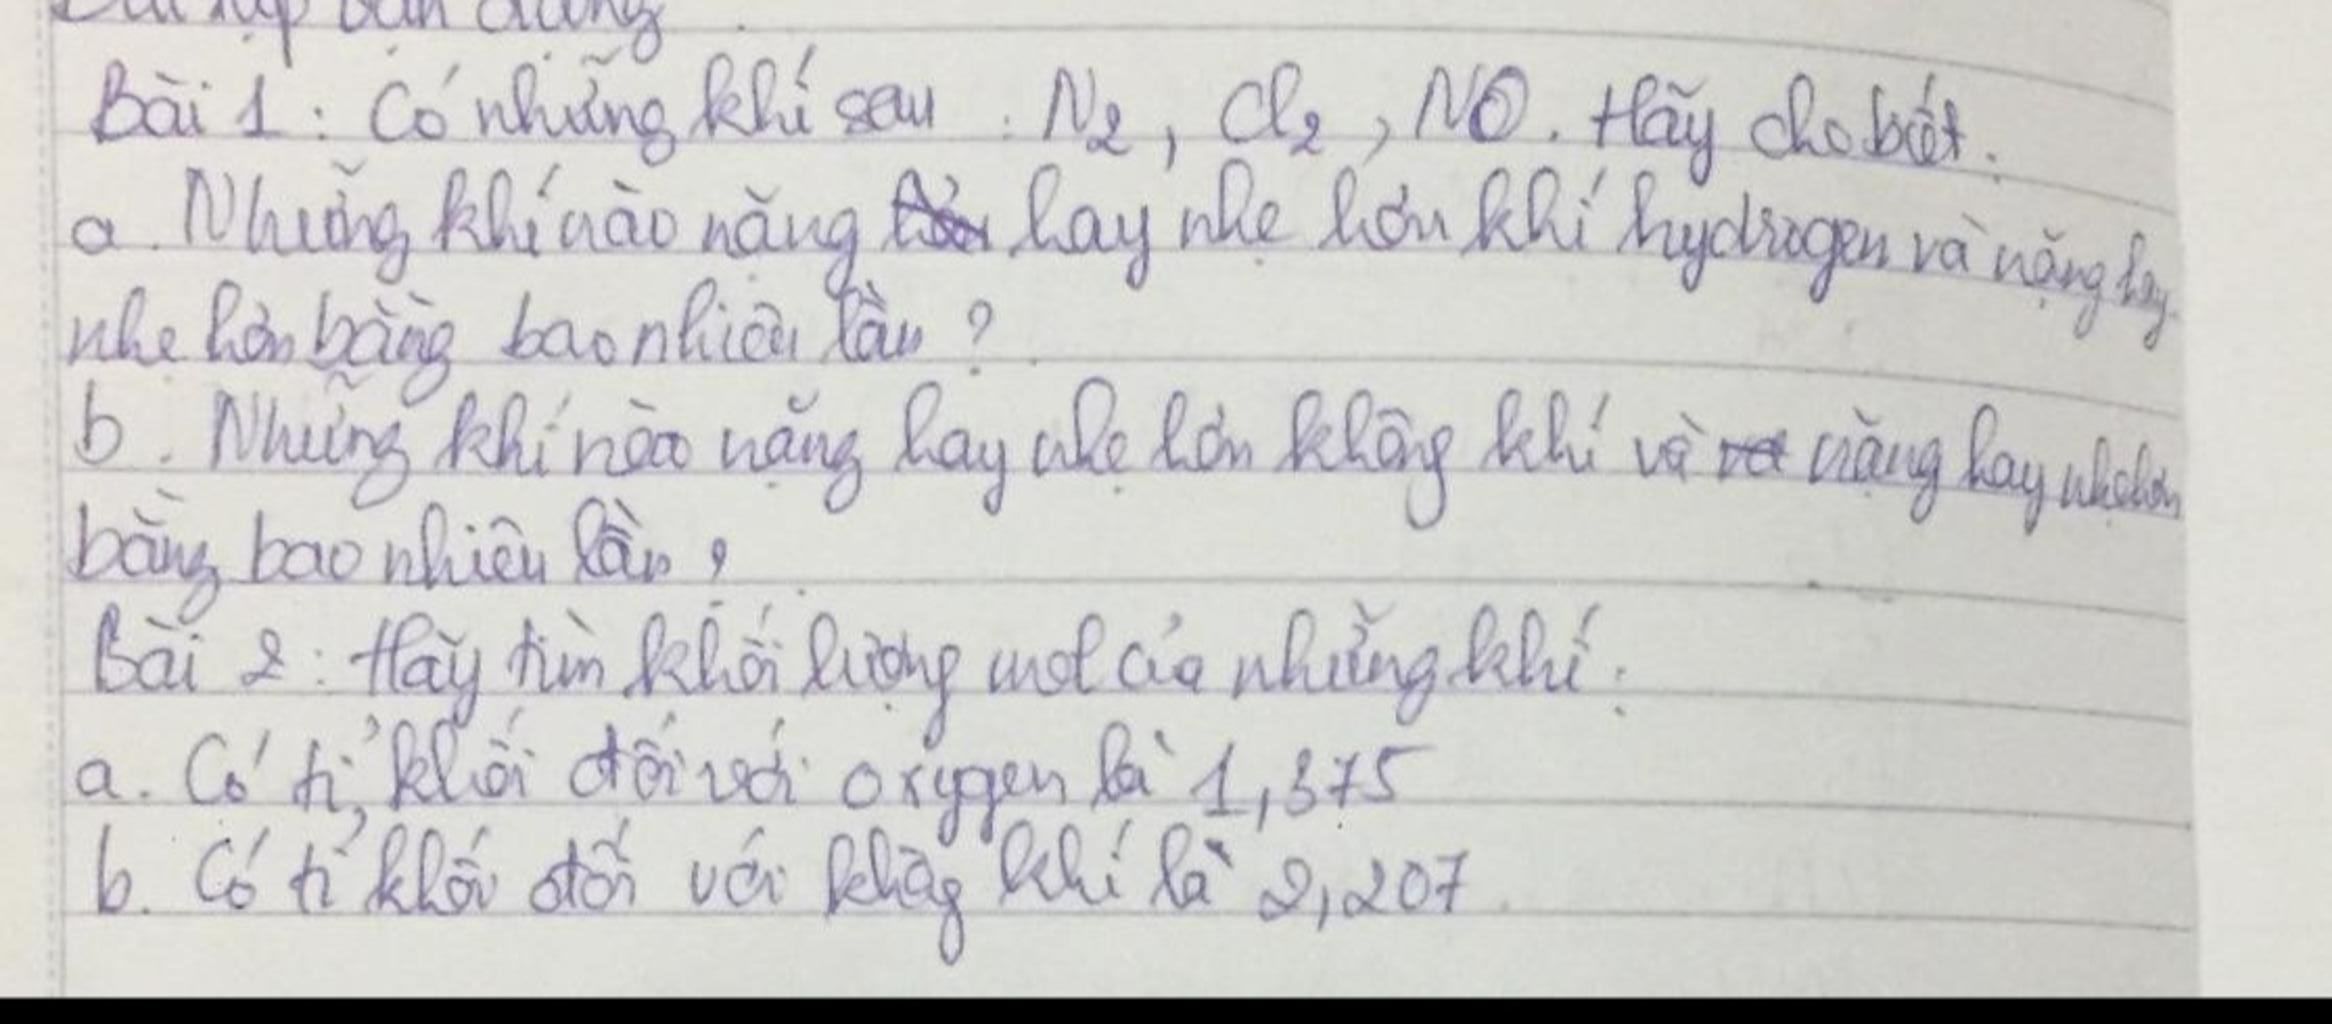 Bài tập vận dụng
Bài 1: Có những khí sau: N2, Cl2, NO. Hãy cho biết:
a. Những khí nào nặng hay nhẹ hơn khí hydrogen và nặng hay
nhẹ hơn bằng bao nhiêu lần?
b. Những khí nào nặng hay nhẹ hơn không khí và nặng hay nhẹ hơn
bằng bao nhiêu lần?
Bài 2: Hãy tìm khối lượng mol của những khí:
a. Có tỉ khối đối với oxygen là 1,375
b. Có tỉ khối đối với không khí là 2,207